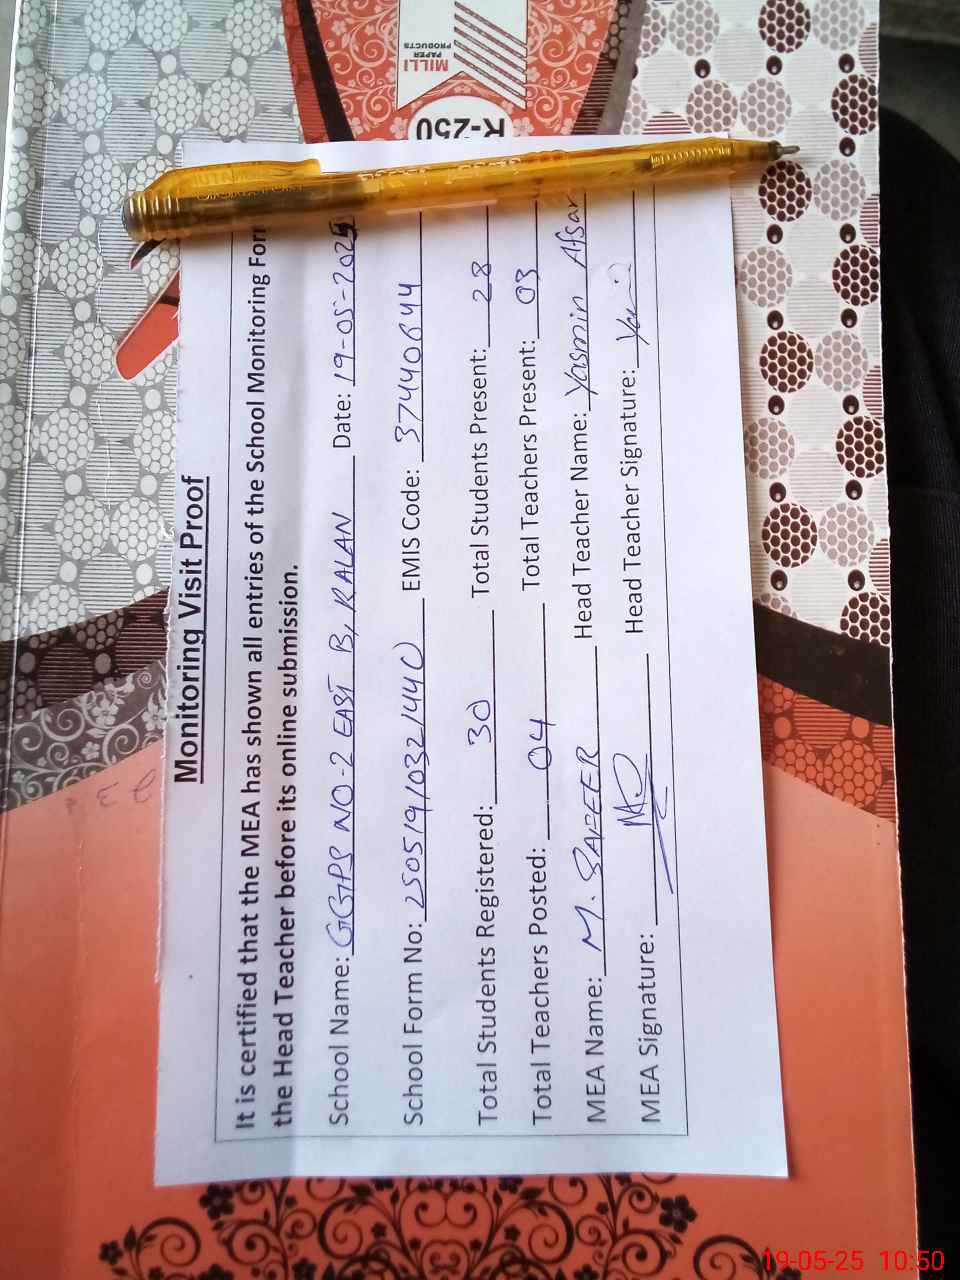 MILLI
PAPER
PRODUCTS
R-250
Monitoring Visit Proof
It is certified that the MEA has shown all entries of the School Monitoring Form
the Head Teacher before its online submission.
School Name: GGPS NO-2 EAST B, RALAN Date: 19-05-2025
School Form No: 25051910321440 EMIS Code: 37440644
Total Students Registered: 30 Total Students Present: 28
Total Teachers Posted: 04 Total Teachers Present: 03
MEA Name: M. SAFEER Head Teacher Name: Yasmin Afsar
MEA Signature: Head Teacher Signature:
19-05-25 10:50